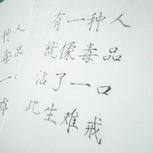 有一种人
就像毒品
沾了一口
此生难戒
种人
毒品
一
难